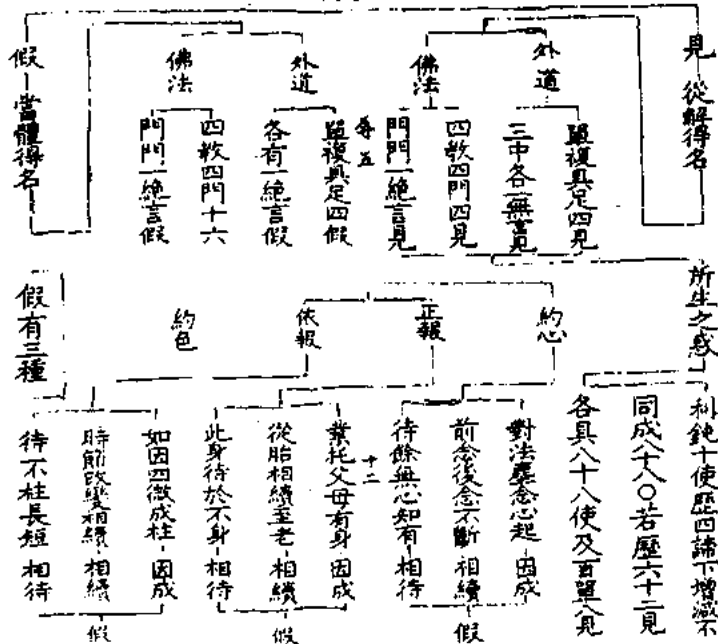 見 從解得名
外道
單複具足四見
三中各一無言見
佛法
四教四門四見
門門一絕言見
每五
外道
單複具足四假
各有一絕言假
佛法
四教四門十六
門門一絕言假
假 當體得名
所生之惑
利鈍十使歷四諦下增減不
同成八十八〇若歷六十二見
各具八十八使及百單八見
約心
對法塵念心起 因成
前念後念不斷 相續
待餘無心知有 相待
假
正報
十二
業托父母有身 因成
從胎相續至老 相續
此身待於不身 相待
假
依報
約色
如因四微成柱 因成
時節改變相續 相續
待不柱長短 相待
假
假有三種